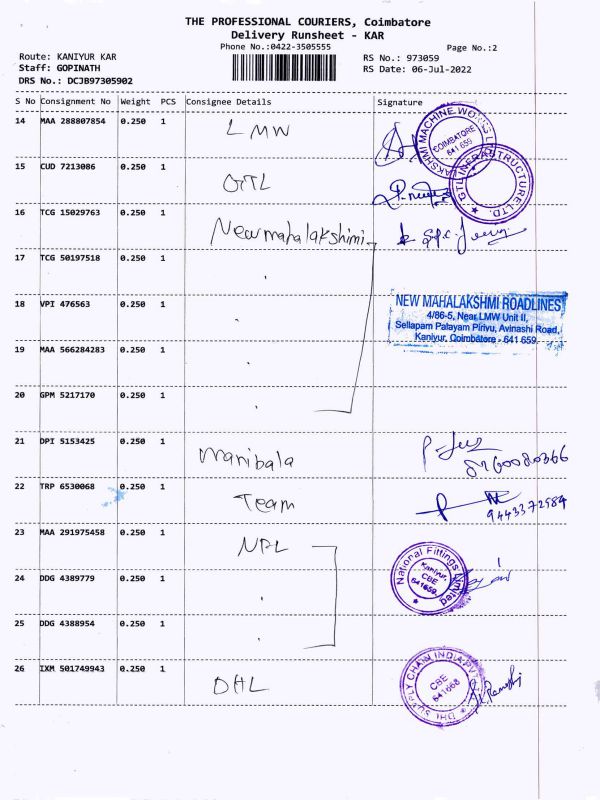 THE PROFESSIONAL COURIERS, Coimbatore
Delivery Runsheet - KAR
Phone No.:0422-3505555
Page No.:2
Route: KANIYUR KAR
RS No.: 973059
Staff: GOPINATH
RS Date: 06-Jul-2022
DRS No.: DCJB97305902
S No Consignment No Weight PCS Consignee Details Signature
14 MAA 288807854 0.250 1 LMW
LAKSHMI MACHINE WORKS
COIMBATORE
641 659
15 CUD 7213086 0.250 1 GTL
GTL INFRASTRUCTURE LTD.
16 TCG 15029763 0.250 1 Newmahalakshimi
17 TCG 50197518 0.250 1 "
18 VPI 476563 0.250 1 "
NEW MAHALAKSHMI ROADLINES
4/86-5, Near LMW Unit II,
Sellapam Palayam Pirivu, Avinashi Road,
Kaniyur, Coimbatore - 641 659.
19 MAA 566284283 0.250 1 "
20 GPM 5217170 0.250 1 "
21 DPI 5153425 0.250 1 Manibala
22 TRP 6530068 0.250 1 Team
9443372984
23 MAA 291975458 0.250 1 NPL
National Fittings Limited
Kaniyur,
CBE
641659.
24 DDG 4389779 0.250 1 "
25 DDG 4388954 0.250 1 "
26 IXM 501749943 0.250 1 DHL
DHL SUPPLY CHAIN INDIA PVT
CBE
641668